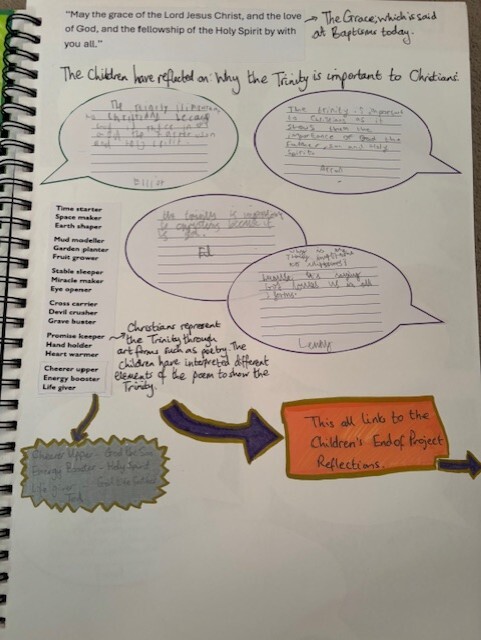 "May the grace of the Lord Jesus Christ, and the love
of God, and the fellowship of the Holy Spirit by with
you all."
→ The Grace, which is said
at Baptisms today.
The Children have reflected on: Why the Trinity is important to Christians.
The trinity is important
to Christians because
The trinity is important
to Christians as it
shows them the
importance of God the
Father, son and Holy
Spirit.
Elliot
is important
to christians because it
is
Ed
Why is the
Trinity important
to
God
is in all
forms.
Lenny
Time starter
Space maker
Earth shaper
Mud modeller
Garden planter
Fruit grower
Stable sleeper
Miracle maker
Eye opener
Cross carrier
Devil crusher
Grave buster
Promise keeper
Hand holder
Heart warmer
Cheerer upper
Energy booster
Life giver
Christians represent
the Trinity through
art forms such as poetry. The
children have interpreted different
elements of the poem to show the
Trinity.
Cheerer Upper - God the Son
Energy Booster - Holy Spirit
Life giver - God the Father
This all link to the
Children's End of Project
Reflections.